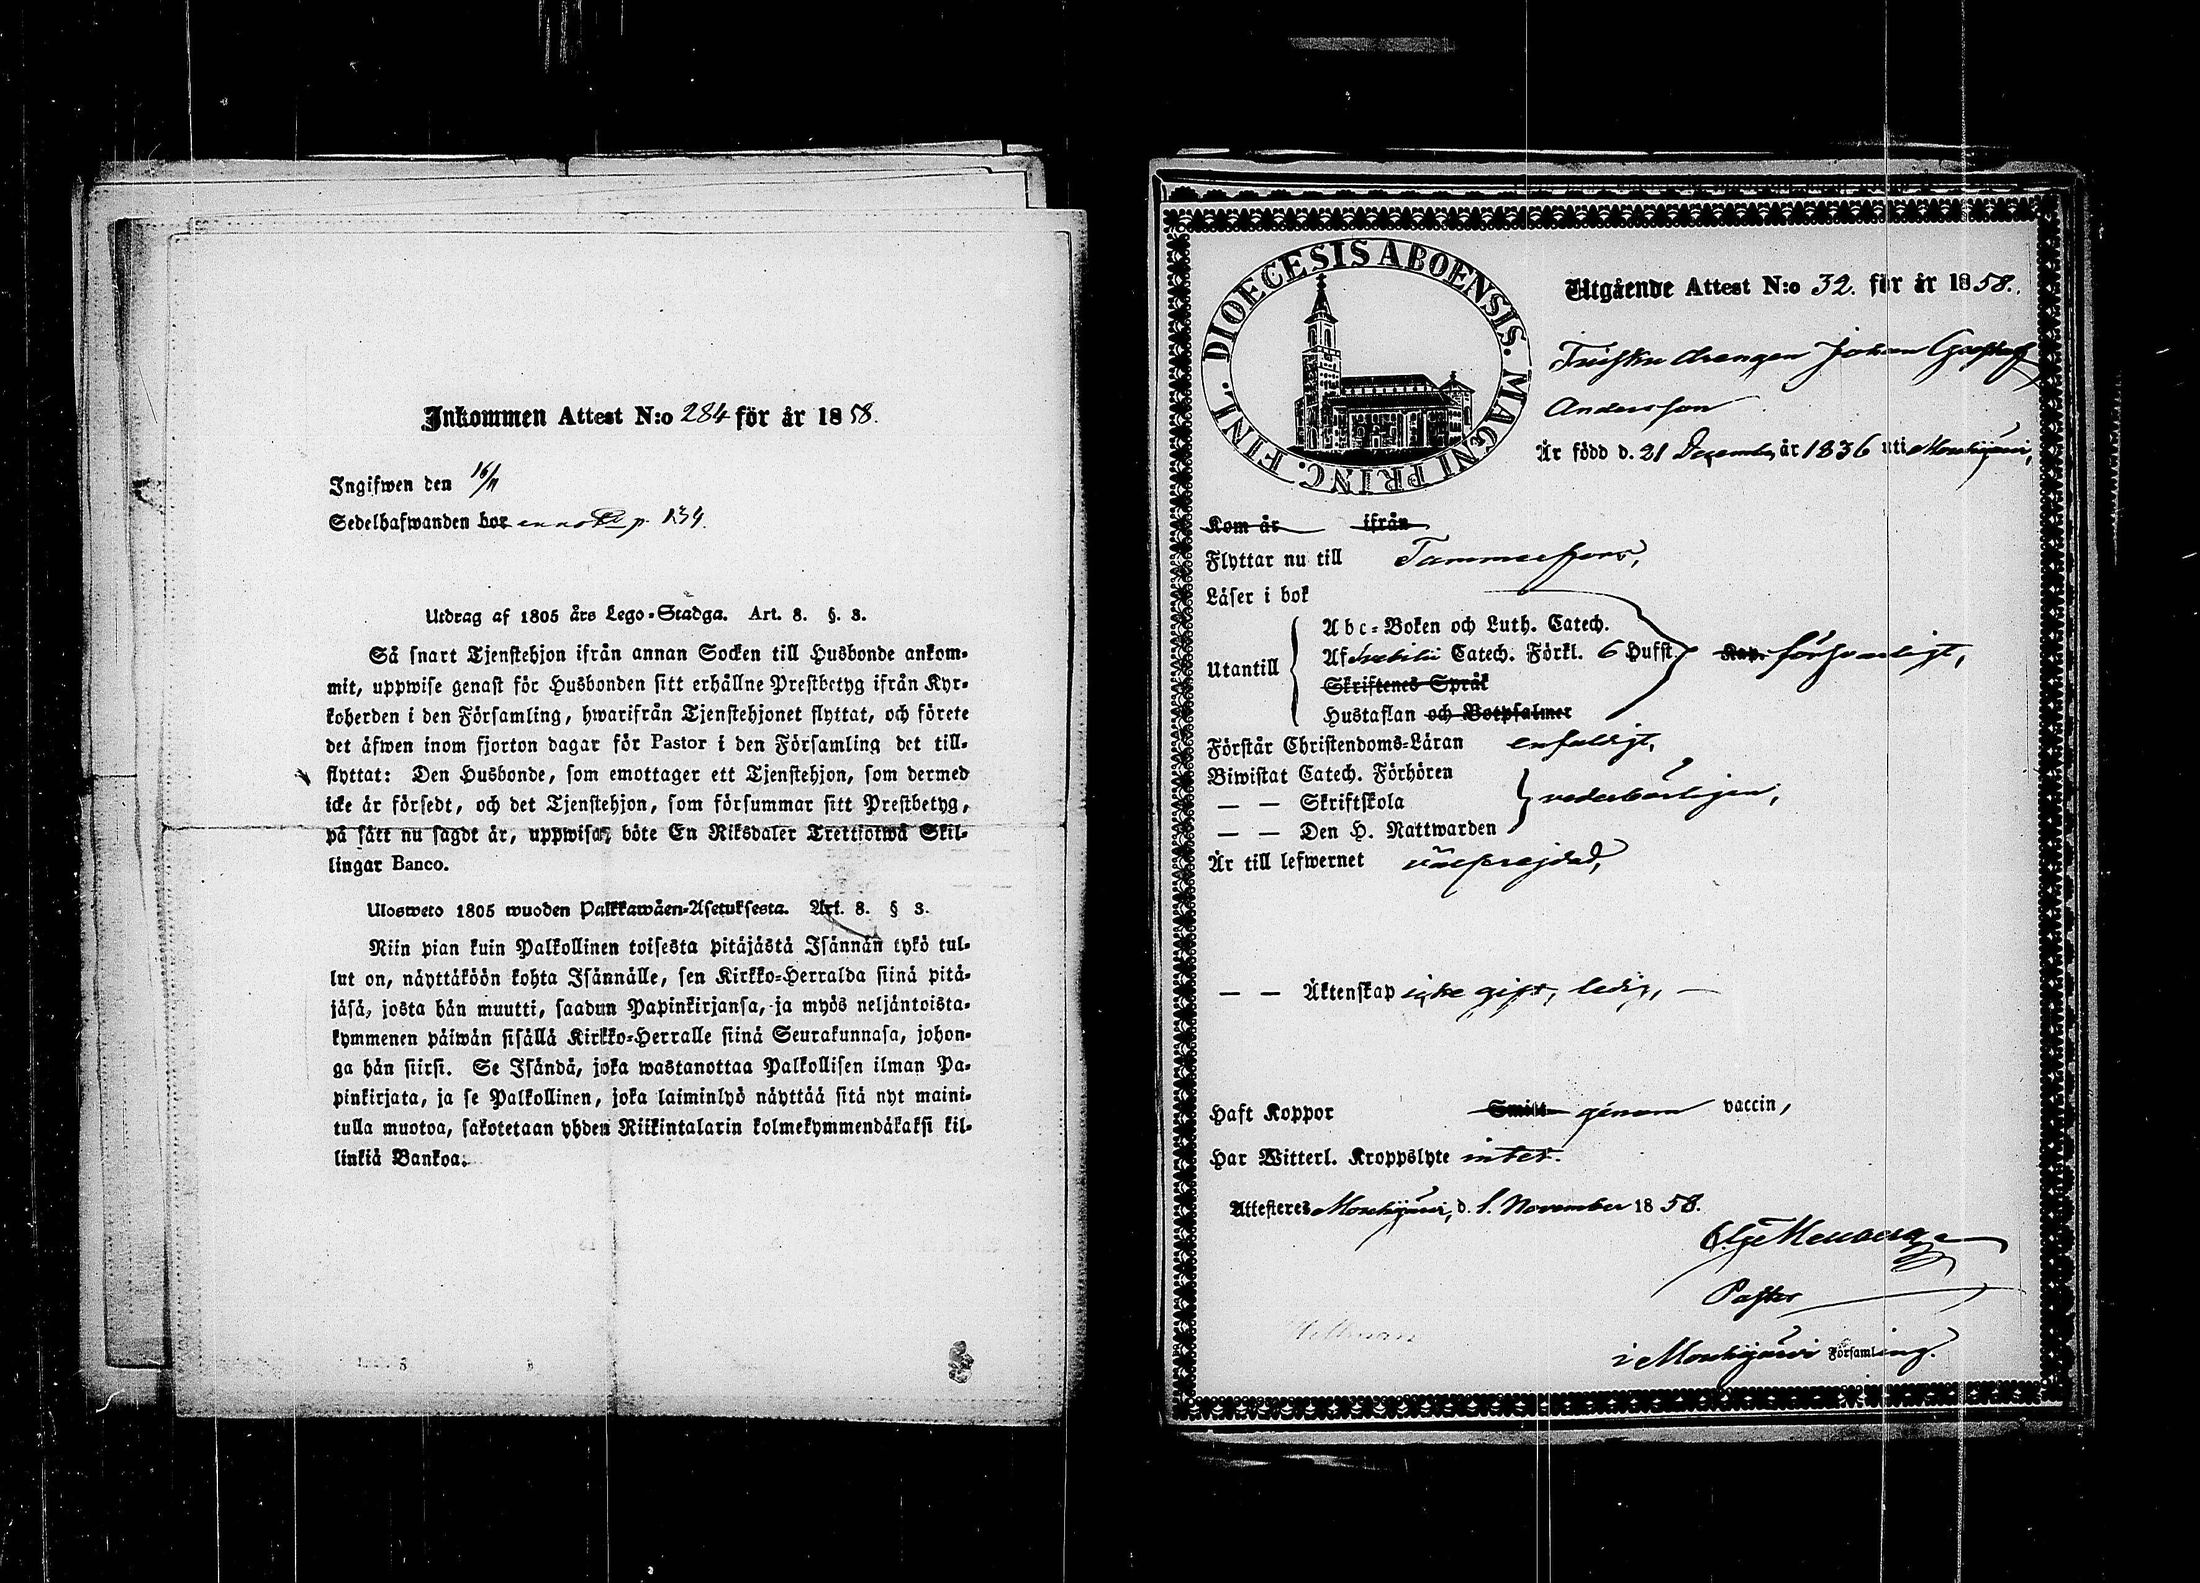 Inkommen Attest N:o 284 för år 1858.
Ingifwen den 16/11
Sedelhafwanden bor p. 134.
Utdrag af 1805 års Lego-Stadga. Art. 8. §. 3.
Så snart Tjenstehjon ifrån annan Socken till Husbonde ankom-
mit, uppwise genast för Husbonden sitt erhållne Prestbetyg ifrån Kyr-
koherden i den Församling, hwarifrån Tjenstehjonet flyttat, och förete
det äfwen inom fjorton dagar för Pastor i den Församling det till-
flyttat: Den Husbonde, som emottager ett Tjenstehjon, som dermed
icke är försedt, och det Tjenstehjon, som försummar sitt Prestbetyg,
på sätt nu sagdt är, uppwisa, böte En Riksdaler Trettiotwå Skil-
lingar Banco.
Ulosweto 1805 wuoden Palkkawäen-Asetuksesta. Art. 8. § 3.
Niin pian kuin Palkollinen toisesta pitäjästä Isännän tykö tul-
lut on, näyttäköön kohta Isännälle, sen Kirkko-Herralda siinä pitä-
jäsä, josta hän muutti, saadun Papinkirjansa, ja myös neljäntoista-
kymmenen päiwän sisällä Kirkko-Herralle siinä Seurakunnasa, johon-
ga hän siirsi. Se Isändä, joka wastanottaa Palkollisen ilman Pa-
pinkirjata, ja se Palkollinen, joka laiminlyö näyttää sitä nyt maini-
tulla muotoa, sakotetaan yhden Riikintalarin kolmekymmendäkaksi kil-
linkiä Bankoa.
DIOECESIS ABOENSIS. MAGNI PRINC. FINL.
Utgående Attest N:o 32. för år 1858.
drengen Johan Gustaf
Andersson
Är född d. 21 December år 1836 uti Mouhijärvi,
Kom år ifrån
Flyttar nu till Tammerfors,
Läser i bok
Utantill
Abc-Boken och Luth. Catech.
Af Svebilii Catech. Förkl. 6 Hufst Kap. försvarligt,
Skriftenes Språk
Hustaflan och Botpsalmer
Förstår Christendoms-Läran enfaldigt,
Biwistat Catech. Förhören
— — Skriftskola vederbörligen,
— — Den H. Nattwarden
Är till lefwernet välfrejdad,
— — Äktenskap icke gift, ledig, —
Haft Koppor genom vaccin,
Har Witterl. Kroppslyte intet.
Attesteres Mouhijärvi, d. 1. November 1858.
Pastor
i Mouhijärvi Församling.